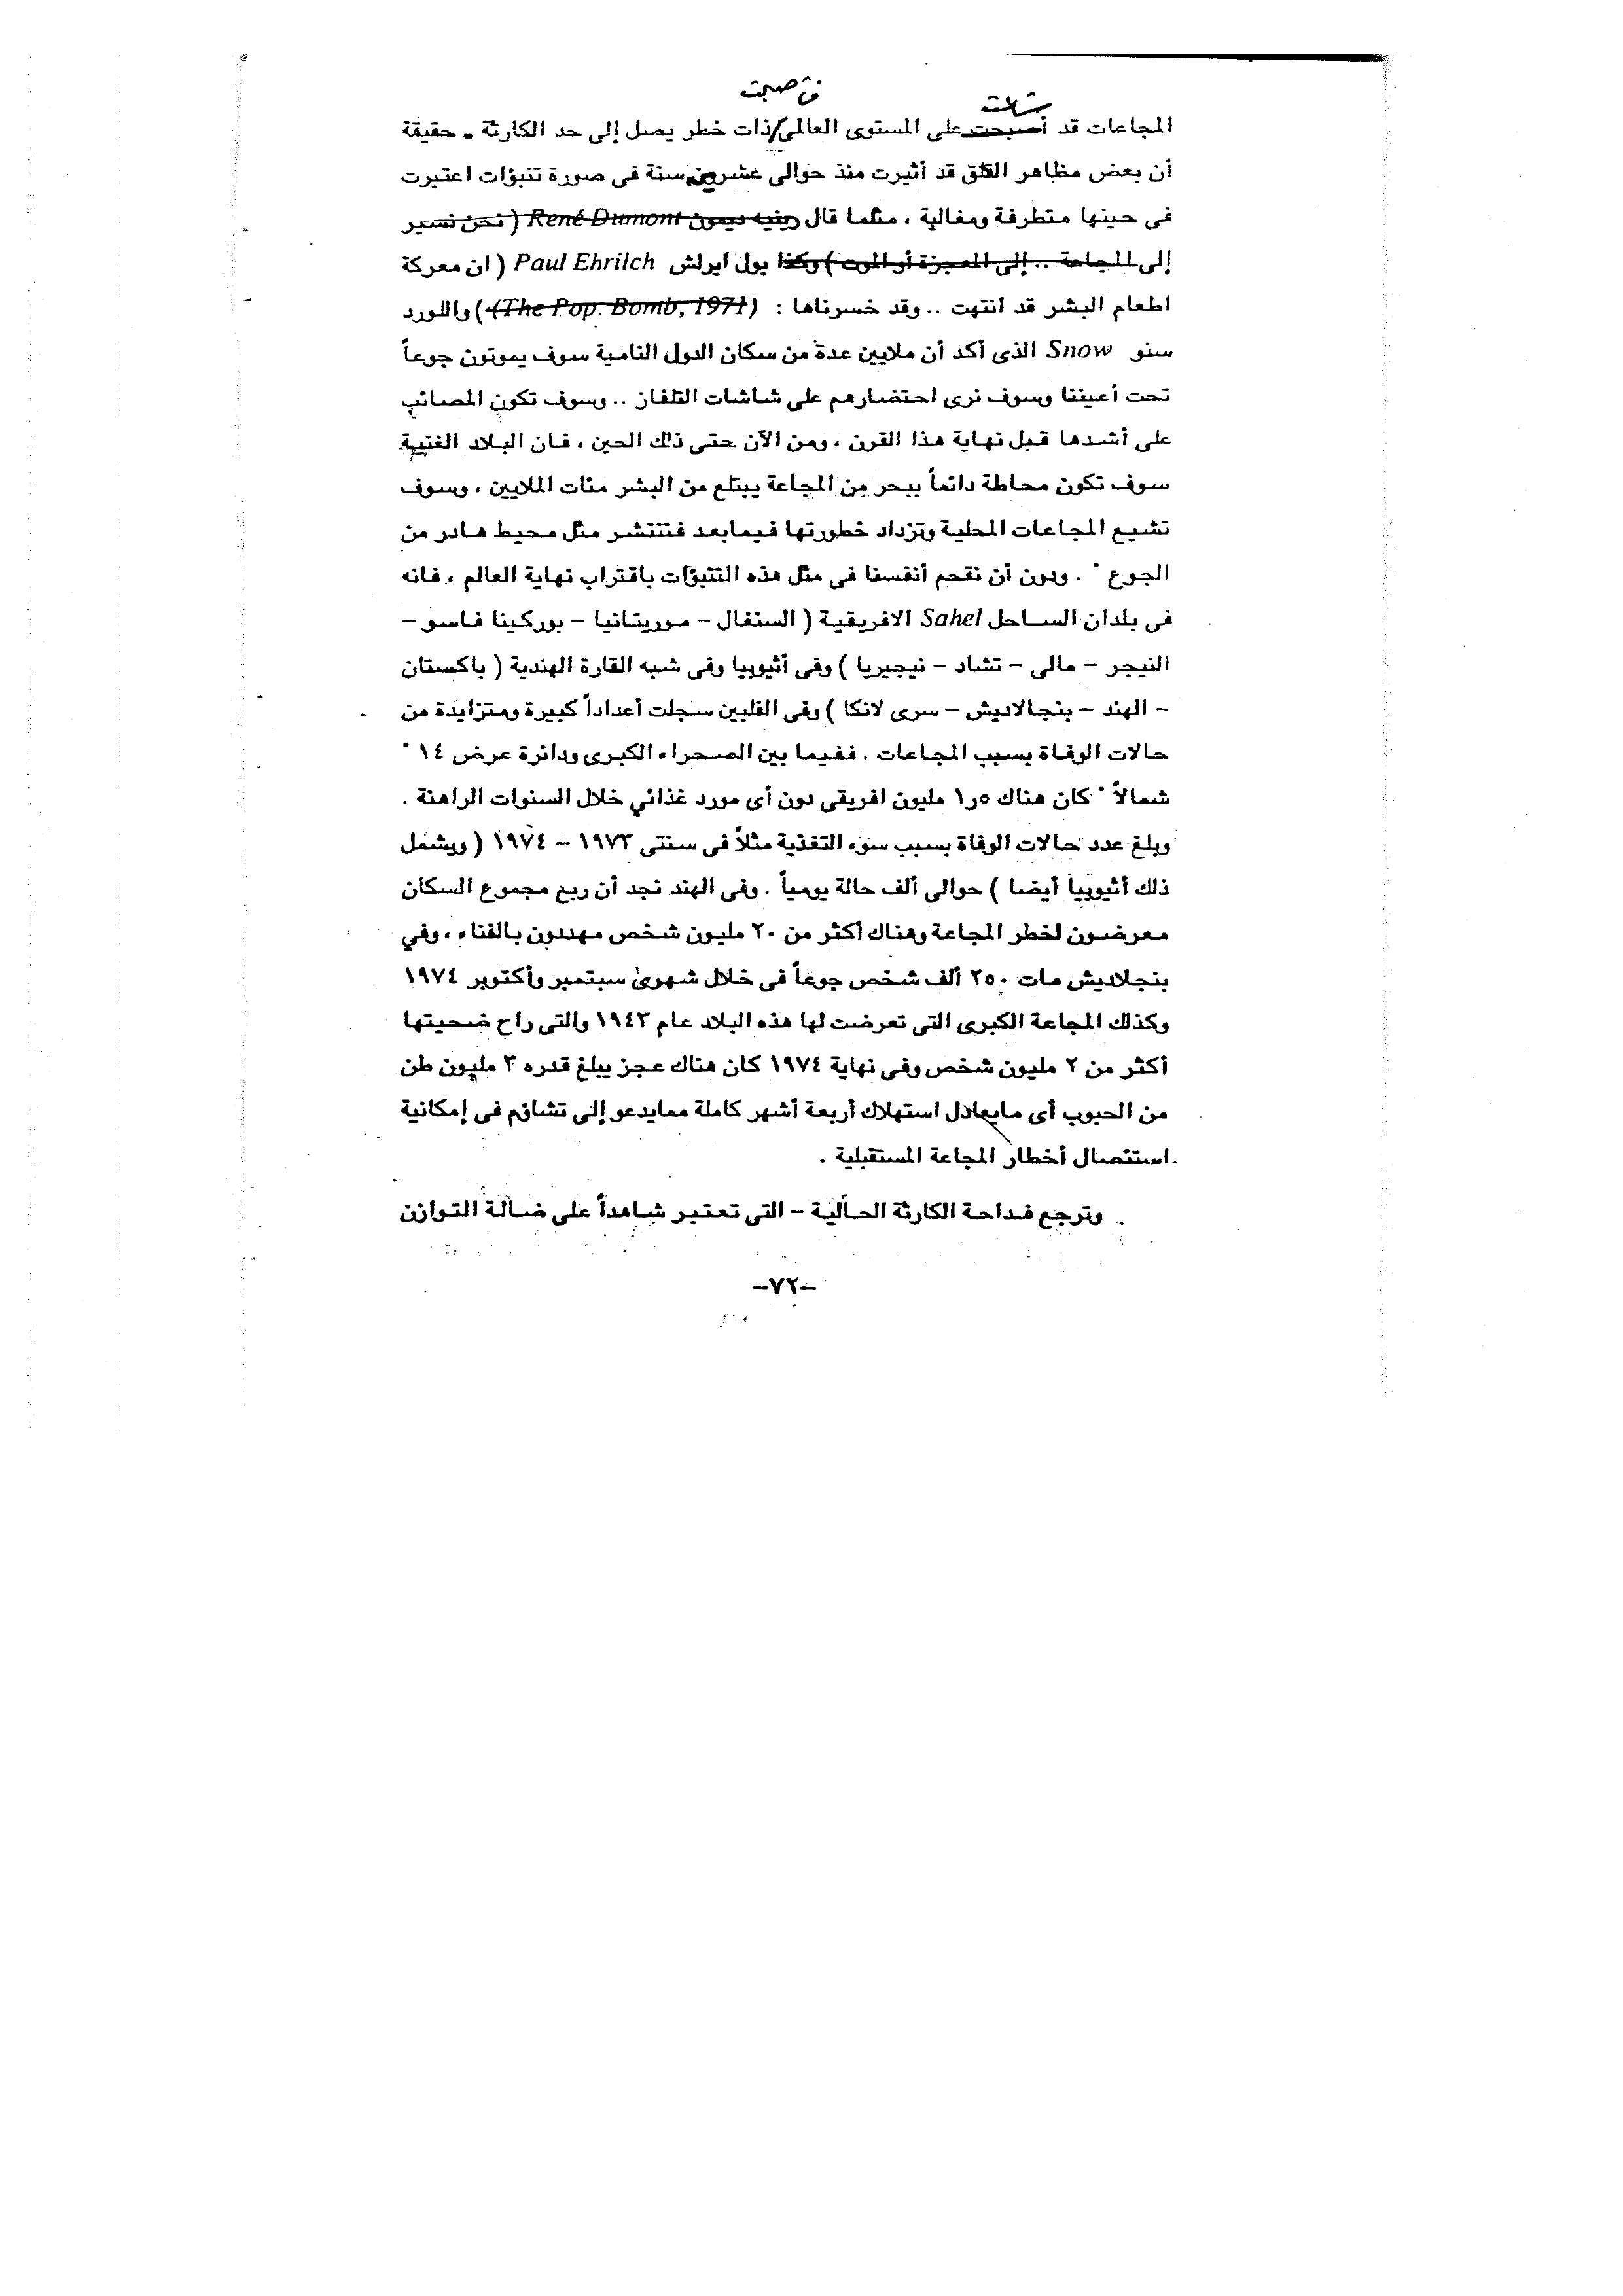 المجاعات قد أصبحت على المستوى العالمى/ذات خطر يصل إلى حد الكارثة . حقيقة
أن بعض مظاهر القلق قد أثيرت منذ حوالى عشرين سنة فى صورة تنبؤات اعتبرت
فى حينها متطرفة ومغالية ، مثلما قال رينيه ديمون René Dumont ( نحن نسير
إلى المجاعة .. إلى المعجزة أو الموت ) وكذا بول ايرلش Paul Ehrilch ( ان معركة
اطعام البشر قد انتهت .. وقد خسرناها : (The Pop. Bomb, 1971) ) واللورد
سنو Snow الذى أكد أن ملايين عدة من سكان الدول النامية سوف يموتون جوعاً
تحت أعيننا وسوف نرى احتضارهم على شاشات التلفاز .. وسوف تكون المصائب
على أشدها قبل نهاية هذا القرن ، ومن الآن حتى ذلك الحين ، فان البلاد الغنية
سوف تكون محاطة دائماً ببحر من المجاعة يبتلع من البشر مئات الملايين ، وسوف
تشيع المجاعات المحلية وتزداد خطورتها فيمابعد فتنتشر مثل محيط هادر من
الجوع " . وبون أن نقحم أنفسنا فى مثل هذه التنبؤات باقتراب نهاية العالم ، فانه
فى بلدان الساحل Sahel الافريقية ( السنغال – موريتانيا – بوركينا فاسو –
النيجر – مالى – تشاد – نيجيريا ) وفى أثيوبيا وفى شبه القارة الهندية ( باكستان
– الهند – بنجالاديش – سرى لانكا ) وفى الفلبين سجلت أعداداً كبيرة ومتزايدة من
حالات الوفاة بسبب المجاعات . ففيما بين الصحراء الكبرى ودائرة عرض ١٤ °
شمالاً " كان هناك ١٫٥ مليون افريقى دون أى مورد غذائي خلال السنوات الراهنة .
وبلغ عدد حالات الوفاة بسبب سوء التغذية مثلاً فى سنتى ١٩٧٣ – ١٩٧٤ ( ويشمل
ذلك أثيوبيا أيضا ) حوالى ألف حالة يومياً . وفى الهند نجد أن ربع مجموع السكان
معرضون لخطر المجاعة وهناك أكثر من ٢٠ مليون شخص مهددون بالفناء ، وفي
بنجلاديش مات ٢٥٠ ألف شخص جوعاً فى خلال شهرى سبتمبر وأكتوبر ١٩٧٤
وكذلك المجاعة الكبرى التى تعرضت لها هذه البلاد عام ١٩٤٣ والتى راح ضحيتها
أكثر من ٢ مليون شخص وفى نهاية ١٩٧٤ كان هناك عجز يبلغ قدره ٣ مليون طن
من الحبوب أى مايعادل استهلاك أربعة أشهر كاملة ممايدعو إلى تشاؤم فى إمكانية
استئصال أخطار المجاعة المستقبلية .
وترجع فداحة الكارثة الحالية – التى تعتبر شاهداً على ضآلة التوازن
–٧٢–